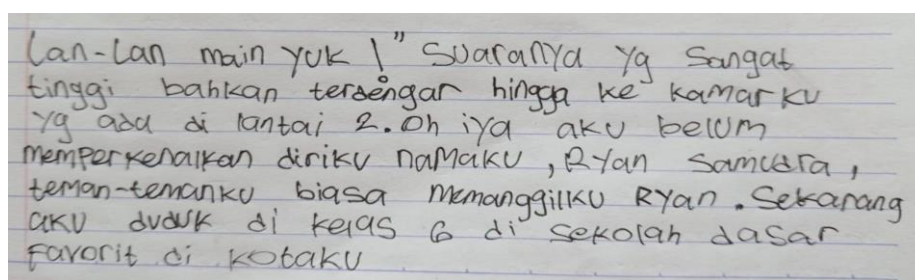 Lan-Lan main yuk !" Suaranya yg Sangat
tinggi bahkan terdengar hingga ke kamarku
yg ada di lantai 2. Oh iya aku belum
memperkenalkan diriku namaku, Ryan Samudra,
teman-temanku biasa memanggilku Ryan. Sekarang
aku duduk di kelas 6 di sekolah dasar
favorit di kotaku